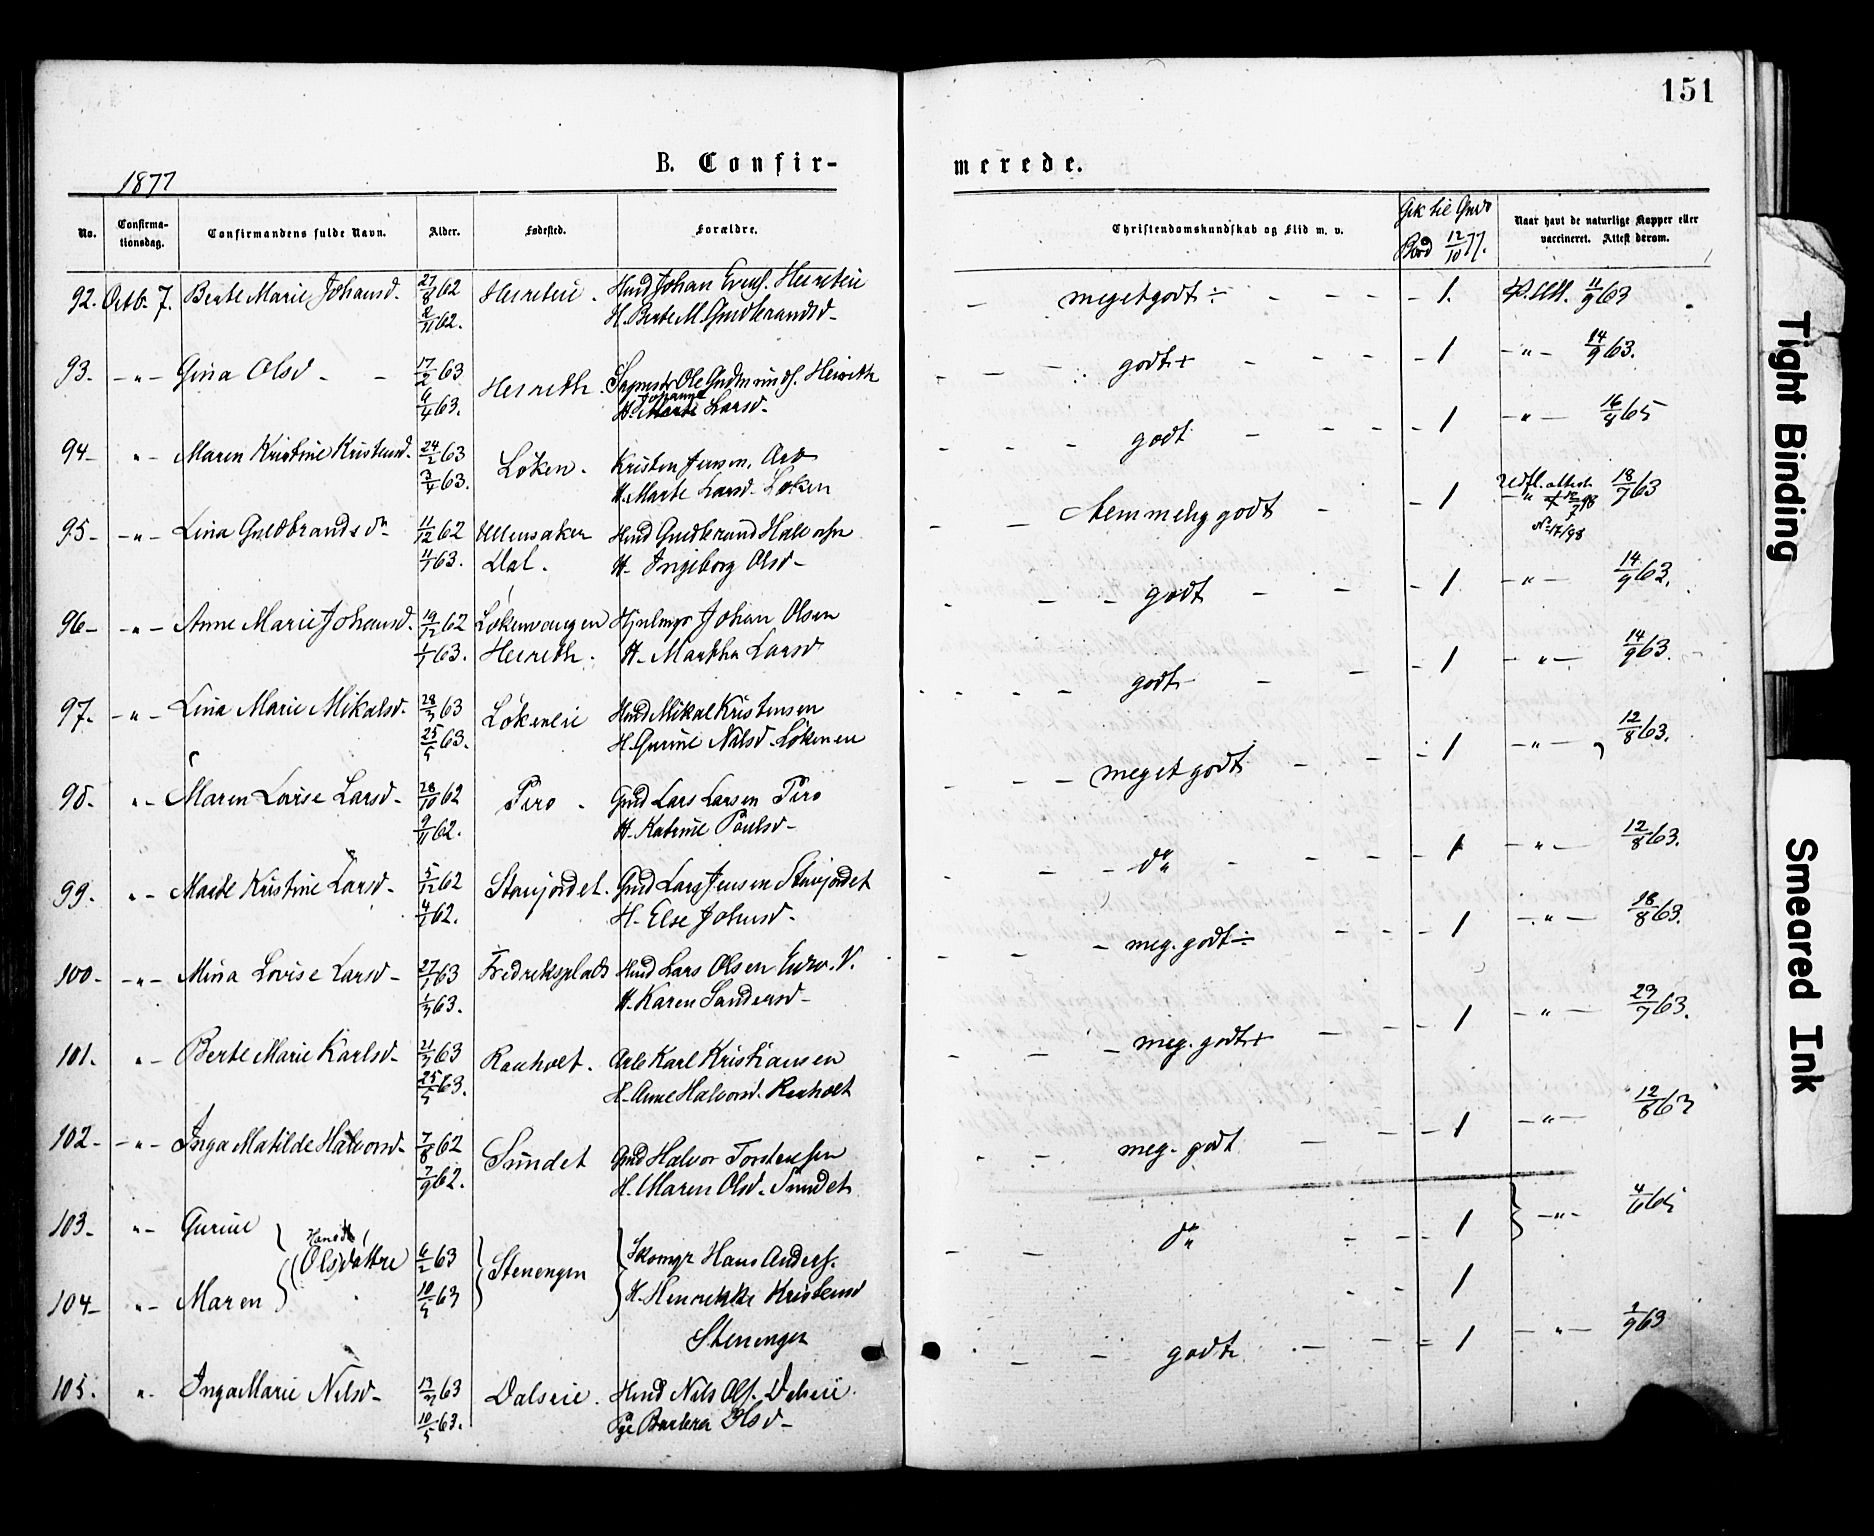 151
B. Confir-
merede.
1877
No.
Confirma-
tionsdag.
Confirmandens fulde Navn.
Alder.
Fødested.
Forældre.
Christendomskundskab og Flid m. v.
Gik til Guds
Bord 12/10 77.
Naar havt de naturlige Kopper eller
vaccineret. Attest derom.
92. Octb. 7. Berte Marie Johansd. 27/8 62 Herseteie. Hmd Johan Evens. Herseteie
8/11 62. H. Berte M. Gudbrandsd-
meget godt ÷ - 1. 11/9 63
93. - " - Gina Olsd - - 17/2 63 Herseth. Ole Gudmunds. Herseth
6/4 63. H. Johanne Marte Larsd-
godt + - 1 - " - 14/9 63.
94- " - Maren Kristine Kristensd. 24/2 63 Løken. Kristen Jensen.
3/4 63. H. Marte Larsd. Løken
godt - 1 - " - 16/8 65
95- - " - Lina Guldbrandsdr 11/12 62 Ullensaker Hmd Gudbrand Halvorsn
4/1 63. Dal. H. Ingeborg Olsd-
temmelig godt - 1 Udfl. attest 18/7 63
No 17/98
96- - " - Anne Marie Johansd. 19/12 62 Løkenvangen Hjulmgr Johan Olsen
1/1 63. Herseth. H. Martha Larsd
godt - 1 - " - 14/9 63.
97. - " - Lina Marie Mikalsd. 28/3 63 Løkeneie Hmd Mikal Kristensen
25/5 63. H. Gurine Nilsd. Løkenen
godt - 1 - " - 14/9 63.
98. " - Maren Lovise Larsd- 28/10 62 Pero. Gmd Lars Larsen Pero
9/11 62. H. Katrine Paulsd-
meget godt - 1 - " - 12/8 63.
99. " - Marte Kristine Larsd- 5/12 62 Stavjordet. Gmd Lars Jensen Stavjordet
4/1 62. H. Else Johnsd-
do - 1 - " - 12/8 63.
100- - " - Mina Lovise Larsd- 27/1 63 Fredriksplads Hmd Lars Olsen
1/3 63. H. Karen Sandersd-
meg. godt ÷ - 1 - " - 18/8 63.
101. " - Berte Marie Karlsd- 21/3 63 Raaholt. Karl Kristiansen
25/5 63. H. Anne Halvorsd. Raaholt
meg. godt + - 1 - " - 23/7 63.
102- - " - Inga Matilde Halvorsd- 7/8 62 Sundet Gmd Halvor Torstensen
7/9 62. H. Maren Olsd. Sundet
meg. godt - 1 - " - 12/8 63
103- " - Gurine Hansd (Olsdattre) 6/2 63 Stenengen Skomgr Hans Anders.
do - 1 - " - 4/6 65
104- " - Maren 10/5 63 H. Henrikke Kristensd
Stenengen
1
105. " . Inga Marie Nilsd- 13/3 63 Dalseie. Hmd Nils Ols. Dalseie.
10/5 63. Pge Barbra Olsd-
godt - 1 - " - 63
Tight Binding
Smeared Ink